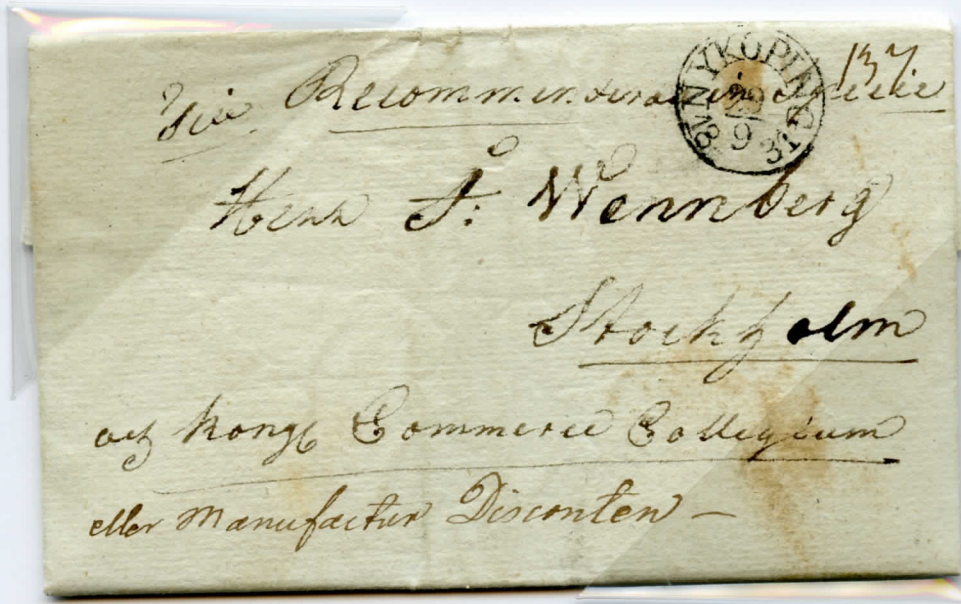 137
Recommenderas
NYKÖPING
9
1831
Herr F: Wennberg
Stockholm
och Kongl Commerce Collegium
eller Manufactur Disconten —